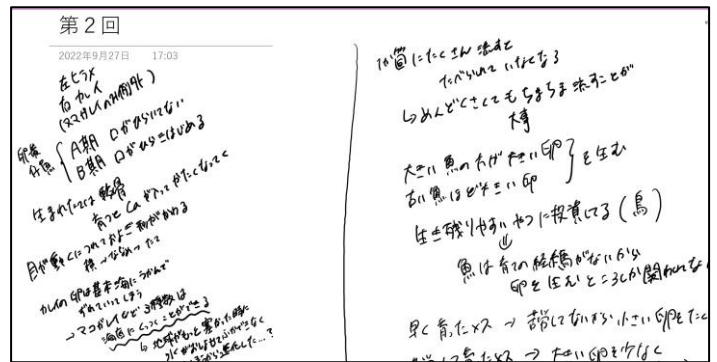 第2回
2022年9月27日 17:03
左ヒラメ
右カレイ
(ヌマガレイのみ例外)
卵黄
仔魚
A期 口がひらいてない
B期 口がひらきはじめる
生まれたては軟骨
育つとCaが入ってかたくなってく
目が動くにつれておよぎ方がかわる
横→ななめったて
カレイの卵は基本海にうかんで
ながれていってしまう
→マコガレイなど3種類は
海底にくっつくことができる
↳地球がもっと寒かった時に
1か箇にたくさん流すと
たべられていなくなる
↳めんどくさくてもちまちま流すことが
大事
大きい魚の方が大きい卵
古い魚ほど大きい卵
を生む
生き残りやすいやつに投資してる(鳥)
魚は育ての経緯がないから
卵を生むところしか関われな
早く育ったメス→苦労してないから小さい卵をたく
育ったメス→大きい卵を少なく